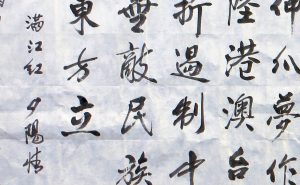 伸爪夢作
陸港澳台
折遏制中
無敵民族
東方立
滿江紅 夕陽情